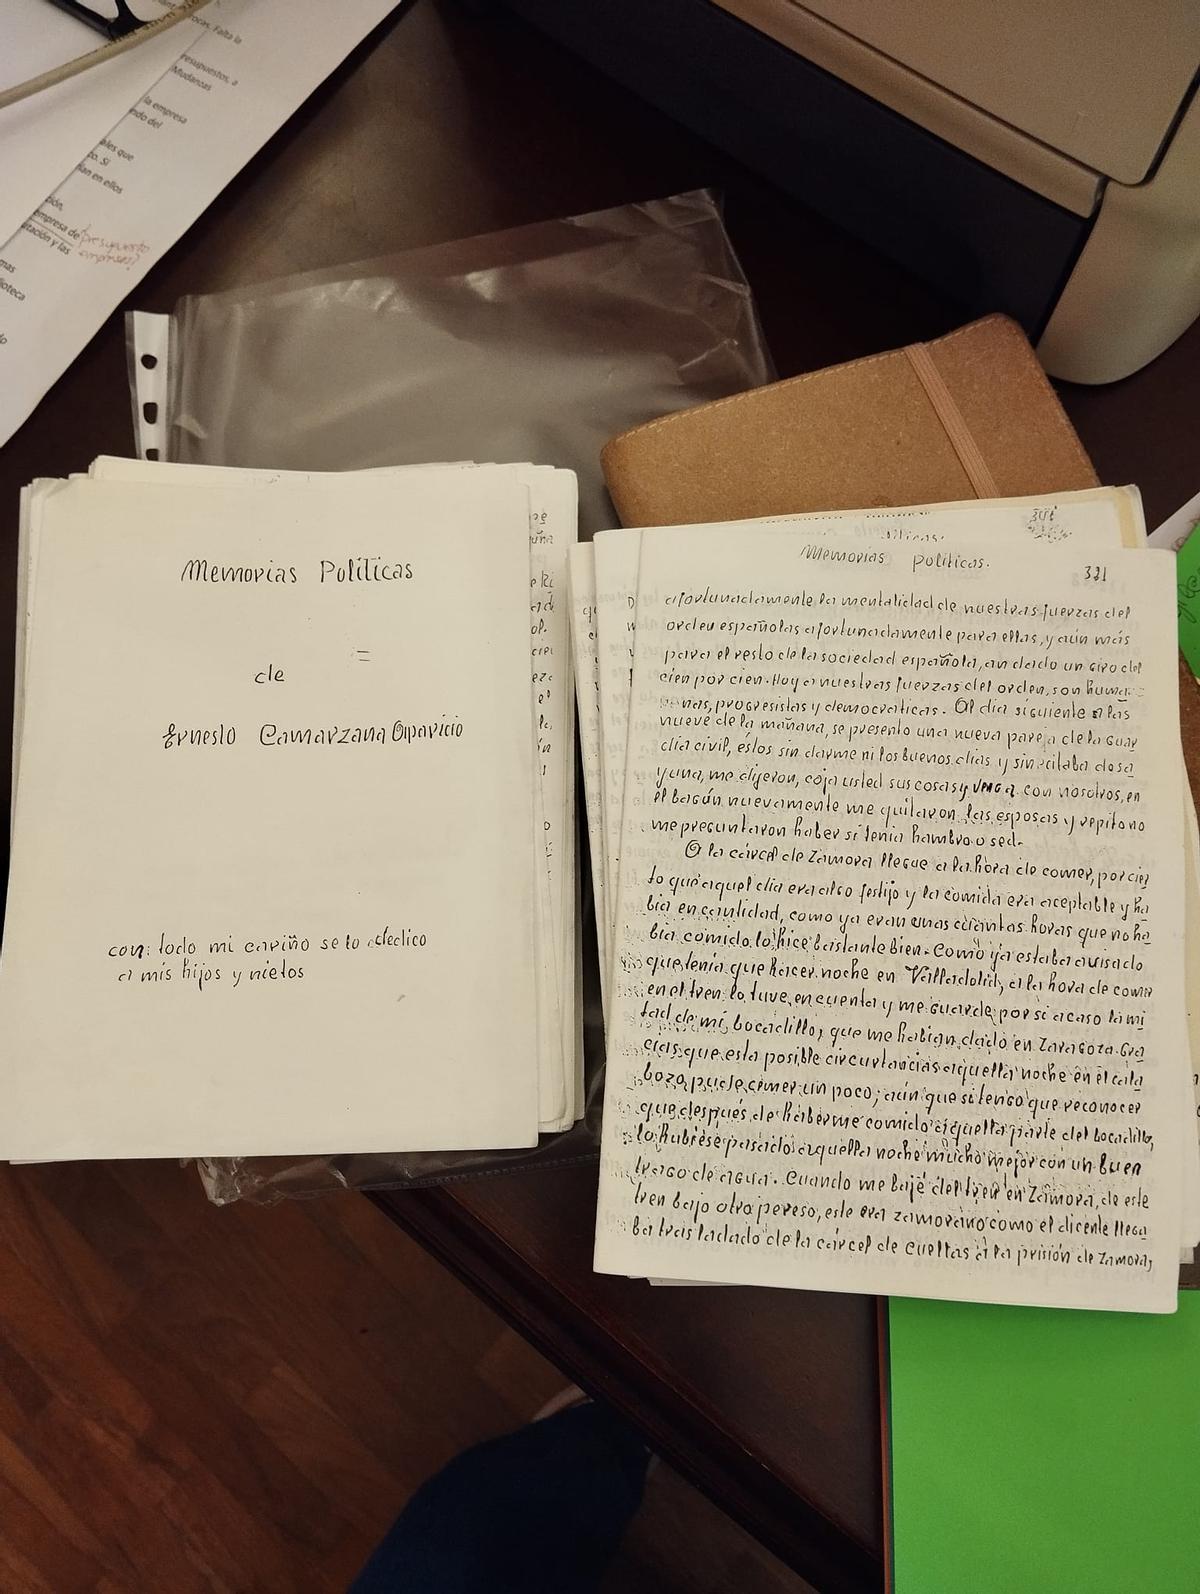 ocas. Falta la
resupuestos, a
Mudanzas
la empresa
ndo del
ales que
co. Si
lan en ellos
ción,
empresa de presupuesto
tación y las empresas?
mas
lioteca
Memorias Políticas
de
Ernesto Camarzana Aparicio
con todo mi cariño se lo dedico
a mis hijos y nietos
Memorias políticas.
331
afortunadamente la mentalidad de nuestras fuerzas del
orden españolas afortunadamente para ellas, y aún más
para el resto de la sociedad española, an dado un giro del
cien por cien. Hoy a nuestras fuerzas del orden, son huma=
nas, progresistas y democraticas. Al dia siguiente a las
nueve de la mañana, se presento una nueva pareja de la Guar
dia civil, éstos sin darme ni los buenos dias y sin
y una, me dijeron, coja usted sus cosas y venga con nosotros, en
el bagún nuevamente me quitaron las esposas y repito no
me preguntaron haber si tenia hambre o sed.
A la cárcel de Zamora llegue a la hora de comer, por cier
to que aquel dia era algo festijo y la comida era aceptable y ha
bia en cantidad, como ya eran unas cuantas horas que no ha
bia comido lo hice bastante bien. Como ya estaba avisado
que tenia que hacer noche en Valladolid, a la hora de comer
en el tren lo tuve en cuenta y me guarde por si acaso la mi
tad de mi bocadillo, que me habian dado en Zaragoza. Gra
cias que esta posible circustancias aquella noche en el cala
bozo pude comer un poco; aún que si tengo que reconocer
que después de haberme comido aquella parte del bocadillo,
lo hubiese pasado aquella noche mucho mejor con un buen
trago de agua. Cuando me bajé del tren en Zamora, de este
tren bajo otro pereso, este era zamorano como el dicente llega
ba trasladado de la cárcel de Cuellas a la prisión de Zamora,